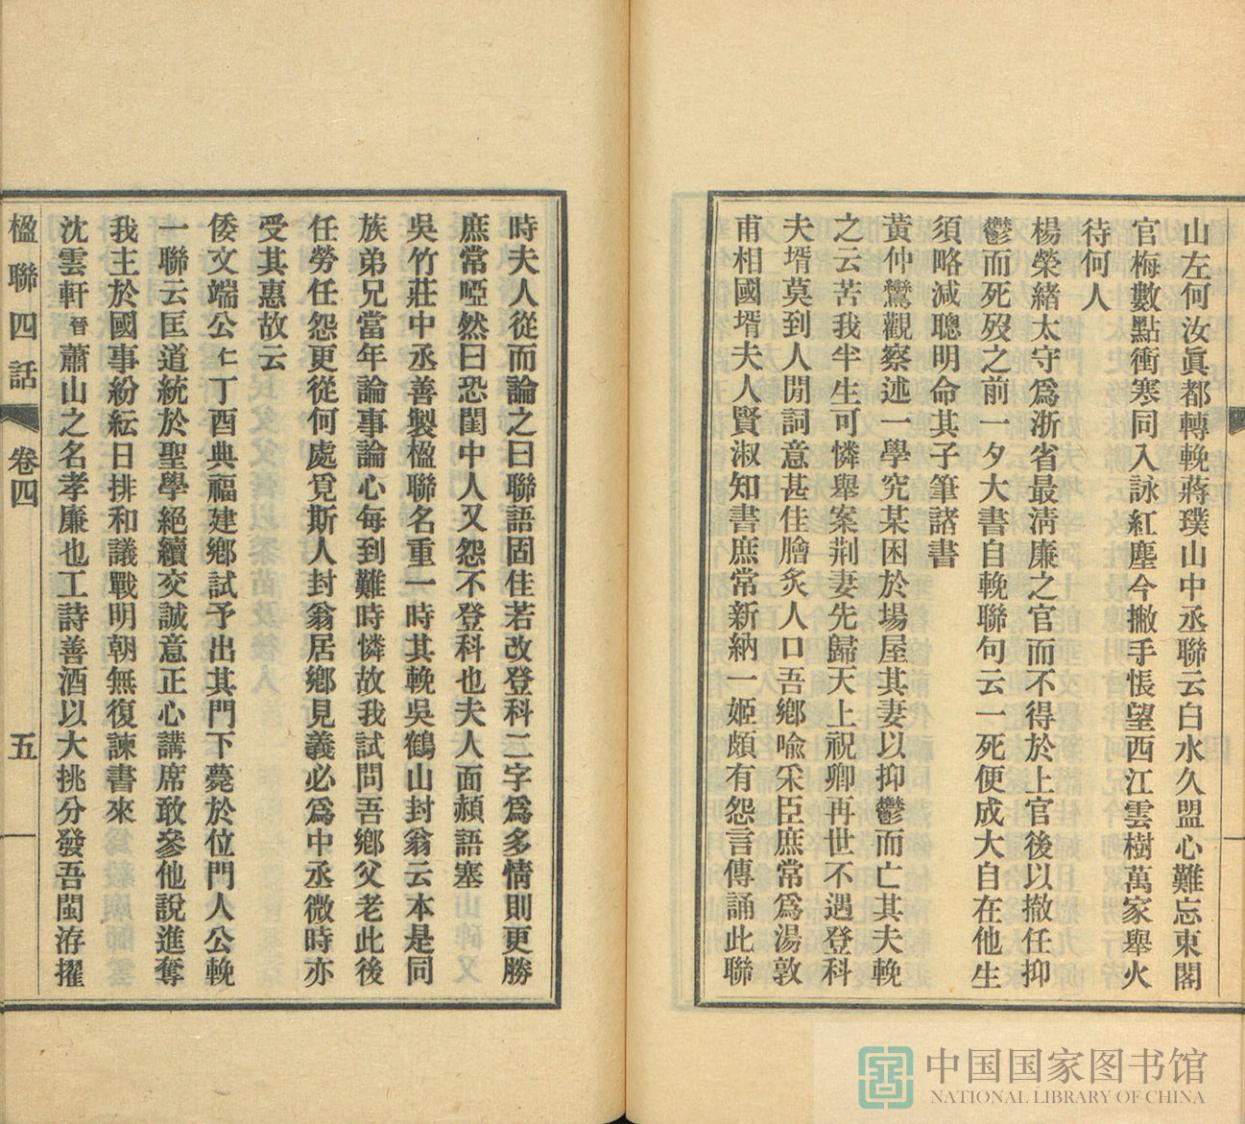 山左何汝眞都轉輓蔣璞山中丞聯云白水久盟心難忘東閣
官梅數點衝寒同入詠紅塵今撇手悵望西江雲樹萬家舉火
待何人
楊榮緒太守爲浙省最淸廉之官而不得於上官後以撤任抑
鬱而死歿之前一夕大書自輓聯句云一死便成大自在他生
須略減聰明命其子筆諸書
黃仲鸞觀察述一學究某困於場屋其妻以抑鬱而亡其夫輓
之云苦我半生可憐舉案荆妻先歸天上祝卿再世不遇登科
夫壻莫到人閒詞意甚佳膾炙人口吾鄕喩采臣庶常爲湯敦
甫相國壻夫人賢淑知書庶常新納一姬頗有怨言傳誦此聯
時夫人從而論之曰聯語固佳若改登科二字爲多情則更勝
庶常啞然曰恐閨中人又怨不登科也夫人面頳語塞
吳竹莊中丞善製楹聯名重一時其輓吳鶴山封翁云本是同
族弟兄當年論事論心每到難時憐故我試問吾鄕父老此後
任勞任怨更從何處覓斯人封翁居鄕見義必爲中丞微時亦
受其惠故云
倭文端公仁丁酉典福建鄕試予出其門下薨於位門人公輓
一聯云匡道統於聖學絕續交誠意正心講席敢參他說進奪
我主於國事紛紜日排和議戰明朝無復諫書來
沈雲軒晉蕭山之名孝廉也工詩善酒以大挑分發吾閩洊擢
楹聯四話 卷四 五
中国国家图书馆
NATIONAL LIBRARY OF CHINA